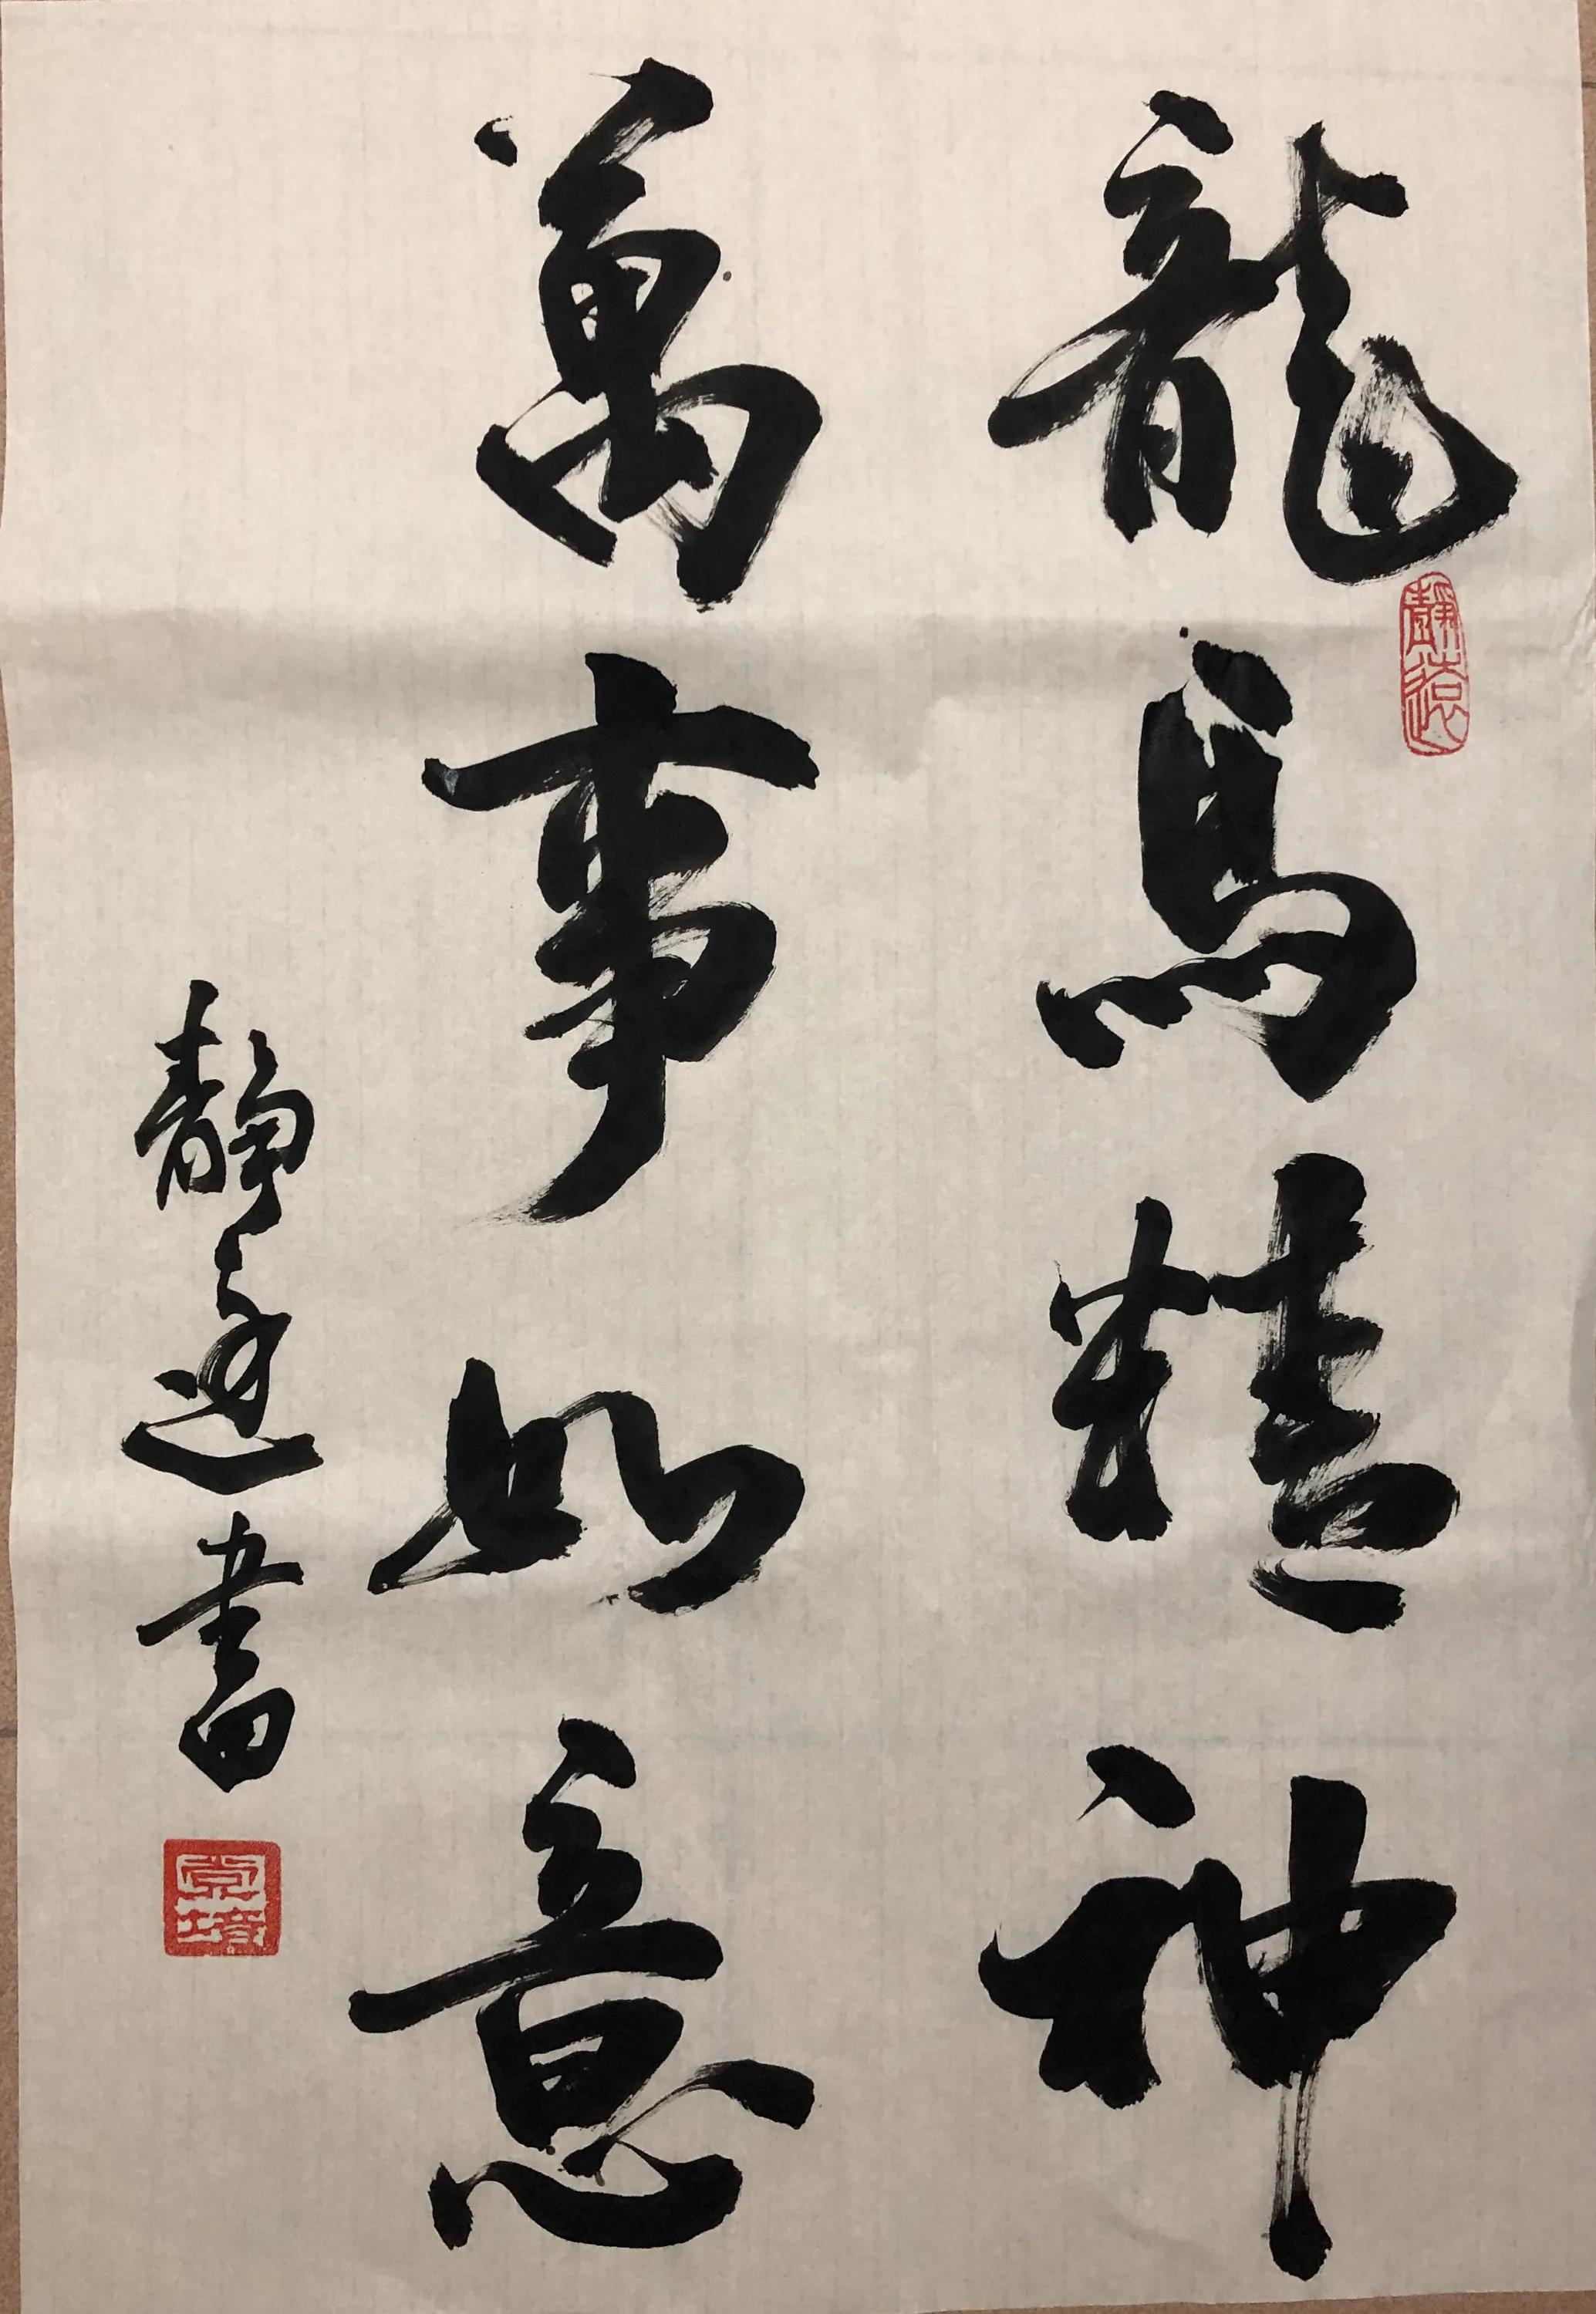 龍馬精神
萬事如意
靜遠書
靜遠